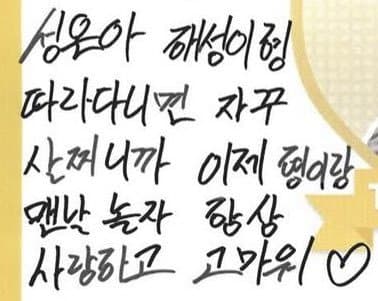 성온아 해성이형
따라다니면 자꾸
살찌니까 이제 형이랑
맨날 놀자 항상
사랑하고 고마워♡